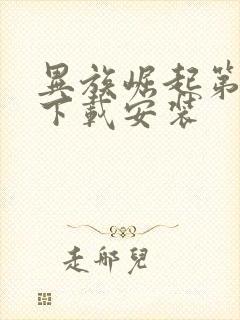 異族崛起第
下載安裝
走邪兒